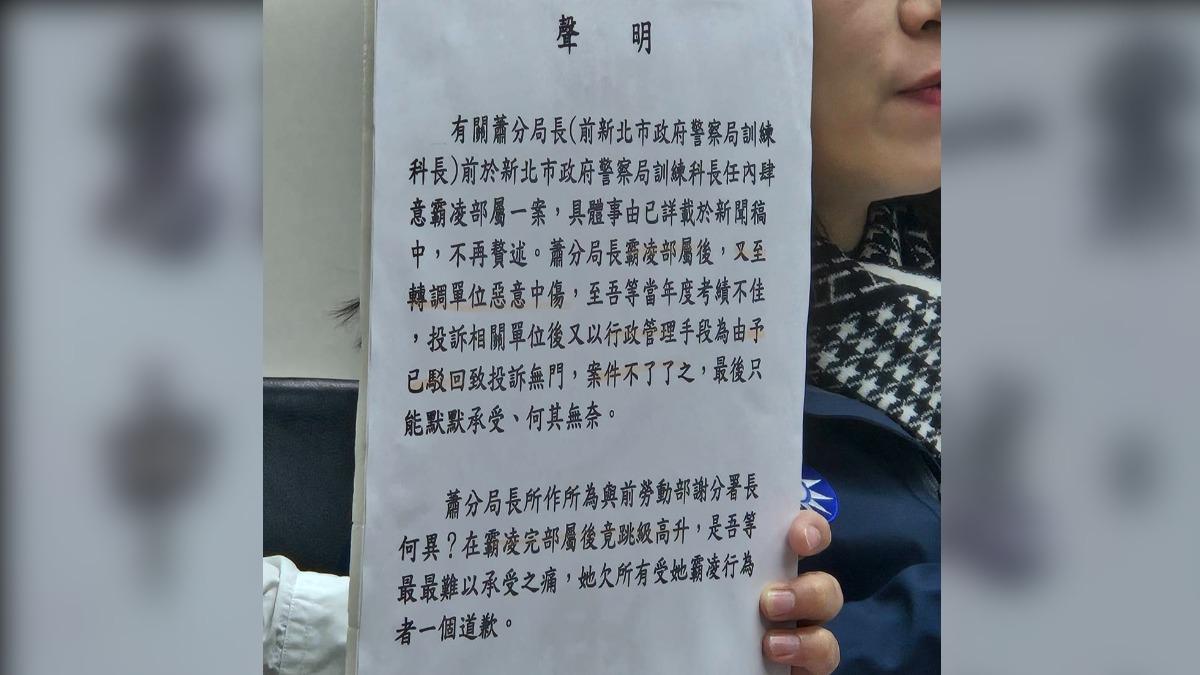 聲 明
有關蕭分局長(前新北市政府警察局訓練
科長)前於新北市政府警察局訓練科長任內肆
意霸凌部屬一案，具體事由已詳載於新聞稿
中，不再贅述。蕭分局長霸凌部屬後，又至
轉調單位惡意中傷，至吾等當年度考績不佳
，投訴相關單位後又以行政管理手段為由予
已駁回致投訴無門，案件不了了之，最後只
能默默承受、何其無奈。
蕭分局長所作所為與前勞動部謝分署長
何異？在霸凌完部屬後竟跳級高升，是吾等
最最難以承受之痛，她欠所有受她霸凌行為
者一個道歉。